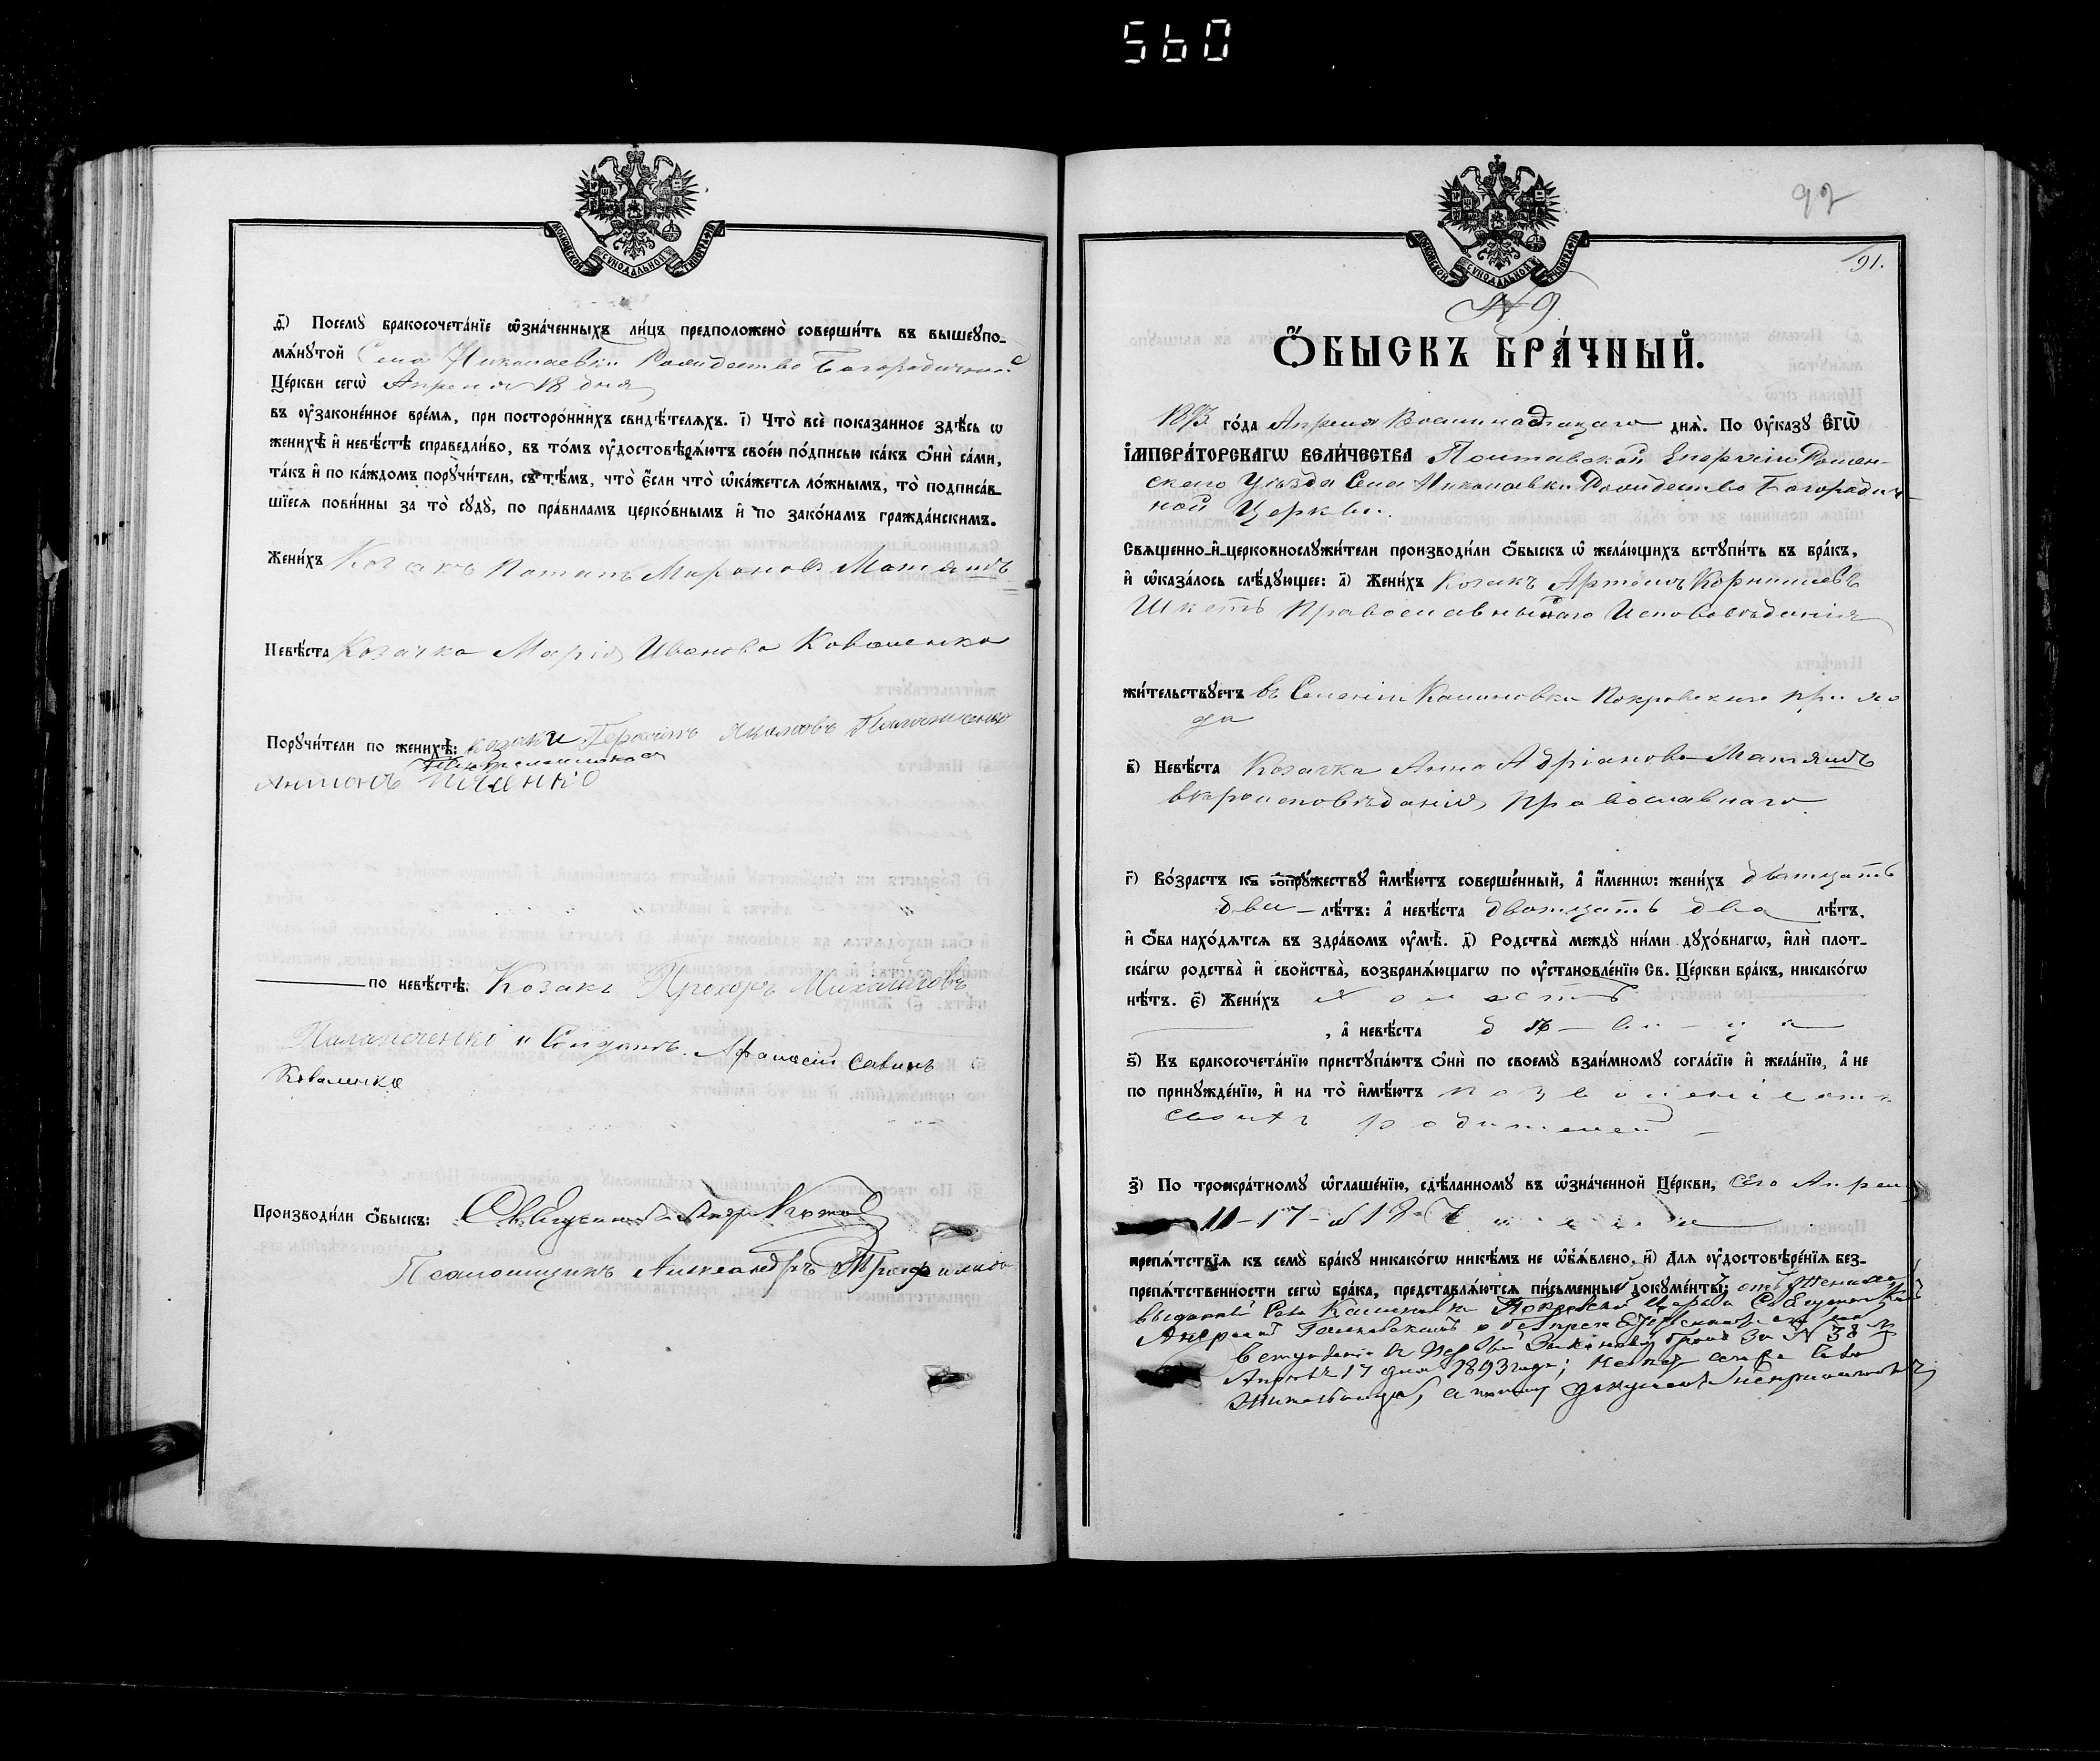 560
МОСКОВСКОЙ СУНОДАЛЬНОЙ ТИПОГРАФІИ
ѳ҃) Посемꙋ̀ бракосочета́нїе ѡ҆зна́ченныхъ ли́цъ предположено̀ соверши́ть въ вышеꙋпо-
мѧ́нꙋтой Села Николаевки Рождество Богородичной
Це́ркви сегѡ̀ Апреля 18 дня
въ ᲂу҆зако́ненное вре́мѧ, при посторо́ннихъ свидѣ́телѧхъ. і҃) Что̀ всѐ показанное здѣ́сь ѡ
женихѣ̀ и҆ невѣ́стѣ справедли́во, въ то́мъ ᲂу҆достовѣрѧ́ютъ свое́ю по́дписью ка́къ ѻ҆нѝ са́ми,
та́къ и҆ по ка́ждомъ порꙋчи́тели, съ тѣ́мъ, что̀ є҆́сли что̀ ѡ҆ка́жетсѧ ло́жнымъ, то̀ подписа́в-
шїесѧ пови́нны за то̀ сꙋдꙋ̀, по пра́виламъ церко́внымъ и҆ по зако́намъ гражда́нскимъ.
Жени́хъ Козакъ Потапъ Мироновъ Матяшъ
Невѣ́ста Козачка Марія Иванова Коваленко
Порꙋчи́тели по женихѣ̀: козаки Герасимъ Яковлевъ
Антонъ
по невѣ́стѣ: Козакъ Прохоръ Михайловъ
и Солдатъ Афанасій Савинъ
Коваленко
Производи́ли ѻ҆́быскъ: Священникъ
Псаломщикъ Александръ
92
МОСКОВСКОЙ СУНОДАЛЬНОЙ ТИПОГРАФІИ
91.
№ 9.
Ѻ҆́БЫСКЪ БРА́ЧНЫЙ.
1893 го́да Апреля Восимнадцаго днѧ̀. По ᲂу҆ка́зꙋ Є҆ГѠ̀
І҆МПЕРА́ТОРСКАГѠ ВЕЛИ́ЧЕСТВА Полтавской Епархіи Ромен-
скаго Уѣзда Села Николаевки Рождество Богородич-
ной Церкви.
Свѧще́нно-и҆-церковнослꙋжи́тели производи́ли ѻ҆́быскъ ѡ҆ жела́ющихъ встꙋпи́ть въ бра́къ,
и҆ ѡ҆каза́лось слѣ́дꙋющее: а҃) Жени́хъ Козакъ Артемъ Корниліевъ
Шкетъ Православнаго Исповѣданія
жи́тельствꙋетъ въ Селеніи Калиновка Покровскаго прихо
да
в҃) Невѣ́ста Козачка Анна Адріанова Матяшъ
вѣроисповѣданія Православнаго
г҃) Во́зрастъ къ сꙋпрꙋ́жествꙋ и҆мѣ́ютъ соверше́нный, а҆ и҆́меннѡ: жени́хъ дватцать
два лѣ́тъ: а҆ невѣ́ста двотцать два лѣ́тъ,
и҆ ѻ҆́ба нахо́дѧтсѧ въ здра́вомъ ᲂу҆мѣ̀. д҃) Родства̀ междꙋ̀ ни́ми дꙋхо́внагѡ, и҆лѝ плот-
ска́гѡ родства̀ и҆ свойства̀, возбранѧ́ющагѡ по ᲂу҆становле́нїю Св. Це́ркви бра́къ, никако́гѡ
нѣ́тъ. є҃) Жени́хъ холостъ
, а҆ невѣ́ста дѣвица
ѕ҃) Къ бракосочета́нїю пристꙋпа́ютъ ѻ҆нѝ по своемꙋ̀ взаи́мномꙋ согла́сїю и҆ жела́нїю, а҆ не
по принꙋжде́нїю, и҆ на то̀ и҆мѣ́ютъ позволеніе отъ
своихъ родителей
з҃) По троекра́тномꙋ ѡ҆глаше́нїю, сдѣ́ланномꙋ въ ѡ҆зна́ченной Це́ркви, Сего Апреля
11-17- и 18-
препѧ́тствїѧ къ семꙋ̀ бра́кꙋ никако́гѡ никѣ́мъ не ѡ҆бъѧ́влено. и҃) Длѧ ᲂу҆достовѣре́нїѧ без-
препѧ́тственности сегѡ̀ бра́ка, представлѧ́ютсѧ пи́сьменные докꙋме́нты: отъ Жениха
выданный Села Калиновки Покровской Церкви Священникомъ
Андреемъ о безпрепятственномъ
вступленіи въ Первый Законный бракъ за № 38
Апреля 17 дня 1893 года;
Жительница, а потому документъ